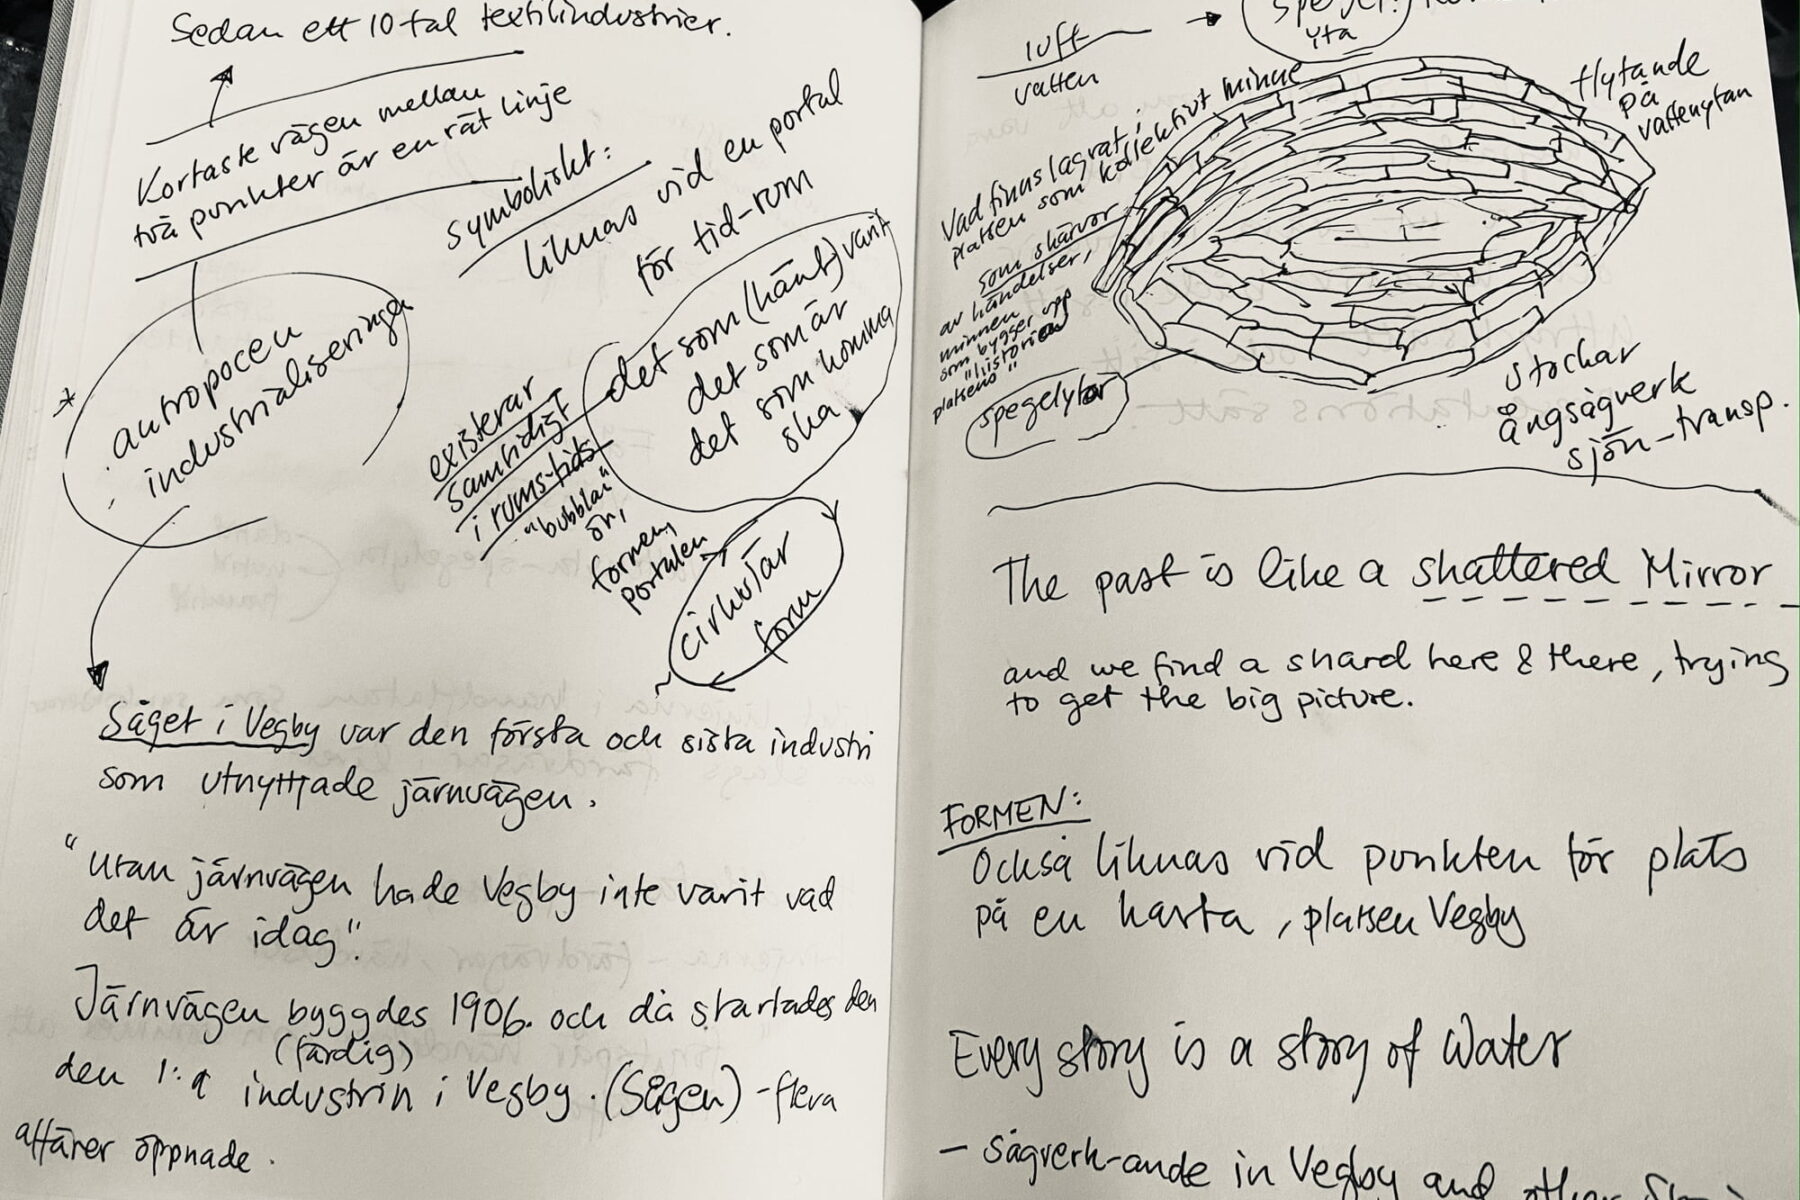 Sedan ett 10 tal textilindustrier.
Kortaste vägen mellan
två punkter är en rät linje
symboliskt:
liknas vid en portal
för tid-rum
antropocen
industrialiseringen
det som (hänt) varit
det som är
det som komma
ska
existerar
samtidigt
i rums-tids-
"bubblan"
formen,
portalen
cirkulär
form
Såget i Vegby var den första och sista industri
som utnyttjade järnvägen.
"Utan järnvägen hade Vegby inte varit vad
det är idag"
Järnvägen byggdes 1906. och då startades den
(färdig)
den 1:a industrin i Vegby. (Sågen) - flera
affärer öppnade.
luft
vatten
yta
flytande
på
vattenytan
Vad finns lagrat i
platsen som kollektivt minne
som skärvor
av händelser,
minnen
som bygger upp
"historien"
platsens
spegelytor
stockar
ångsågverk
sjön-transp.
The past is like a shattered Mirror
and we find a shard here & there, trying
to get the big picture.
FORMEN:
Också liknas vid punkten för plats
på en karta, platsen Vegby
Every story is a story of Water
- sågverk-ande in Vegby and other